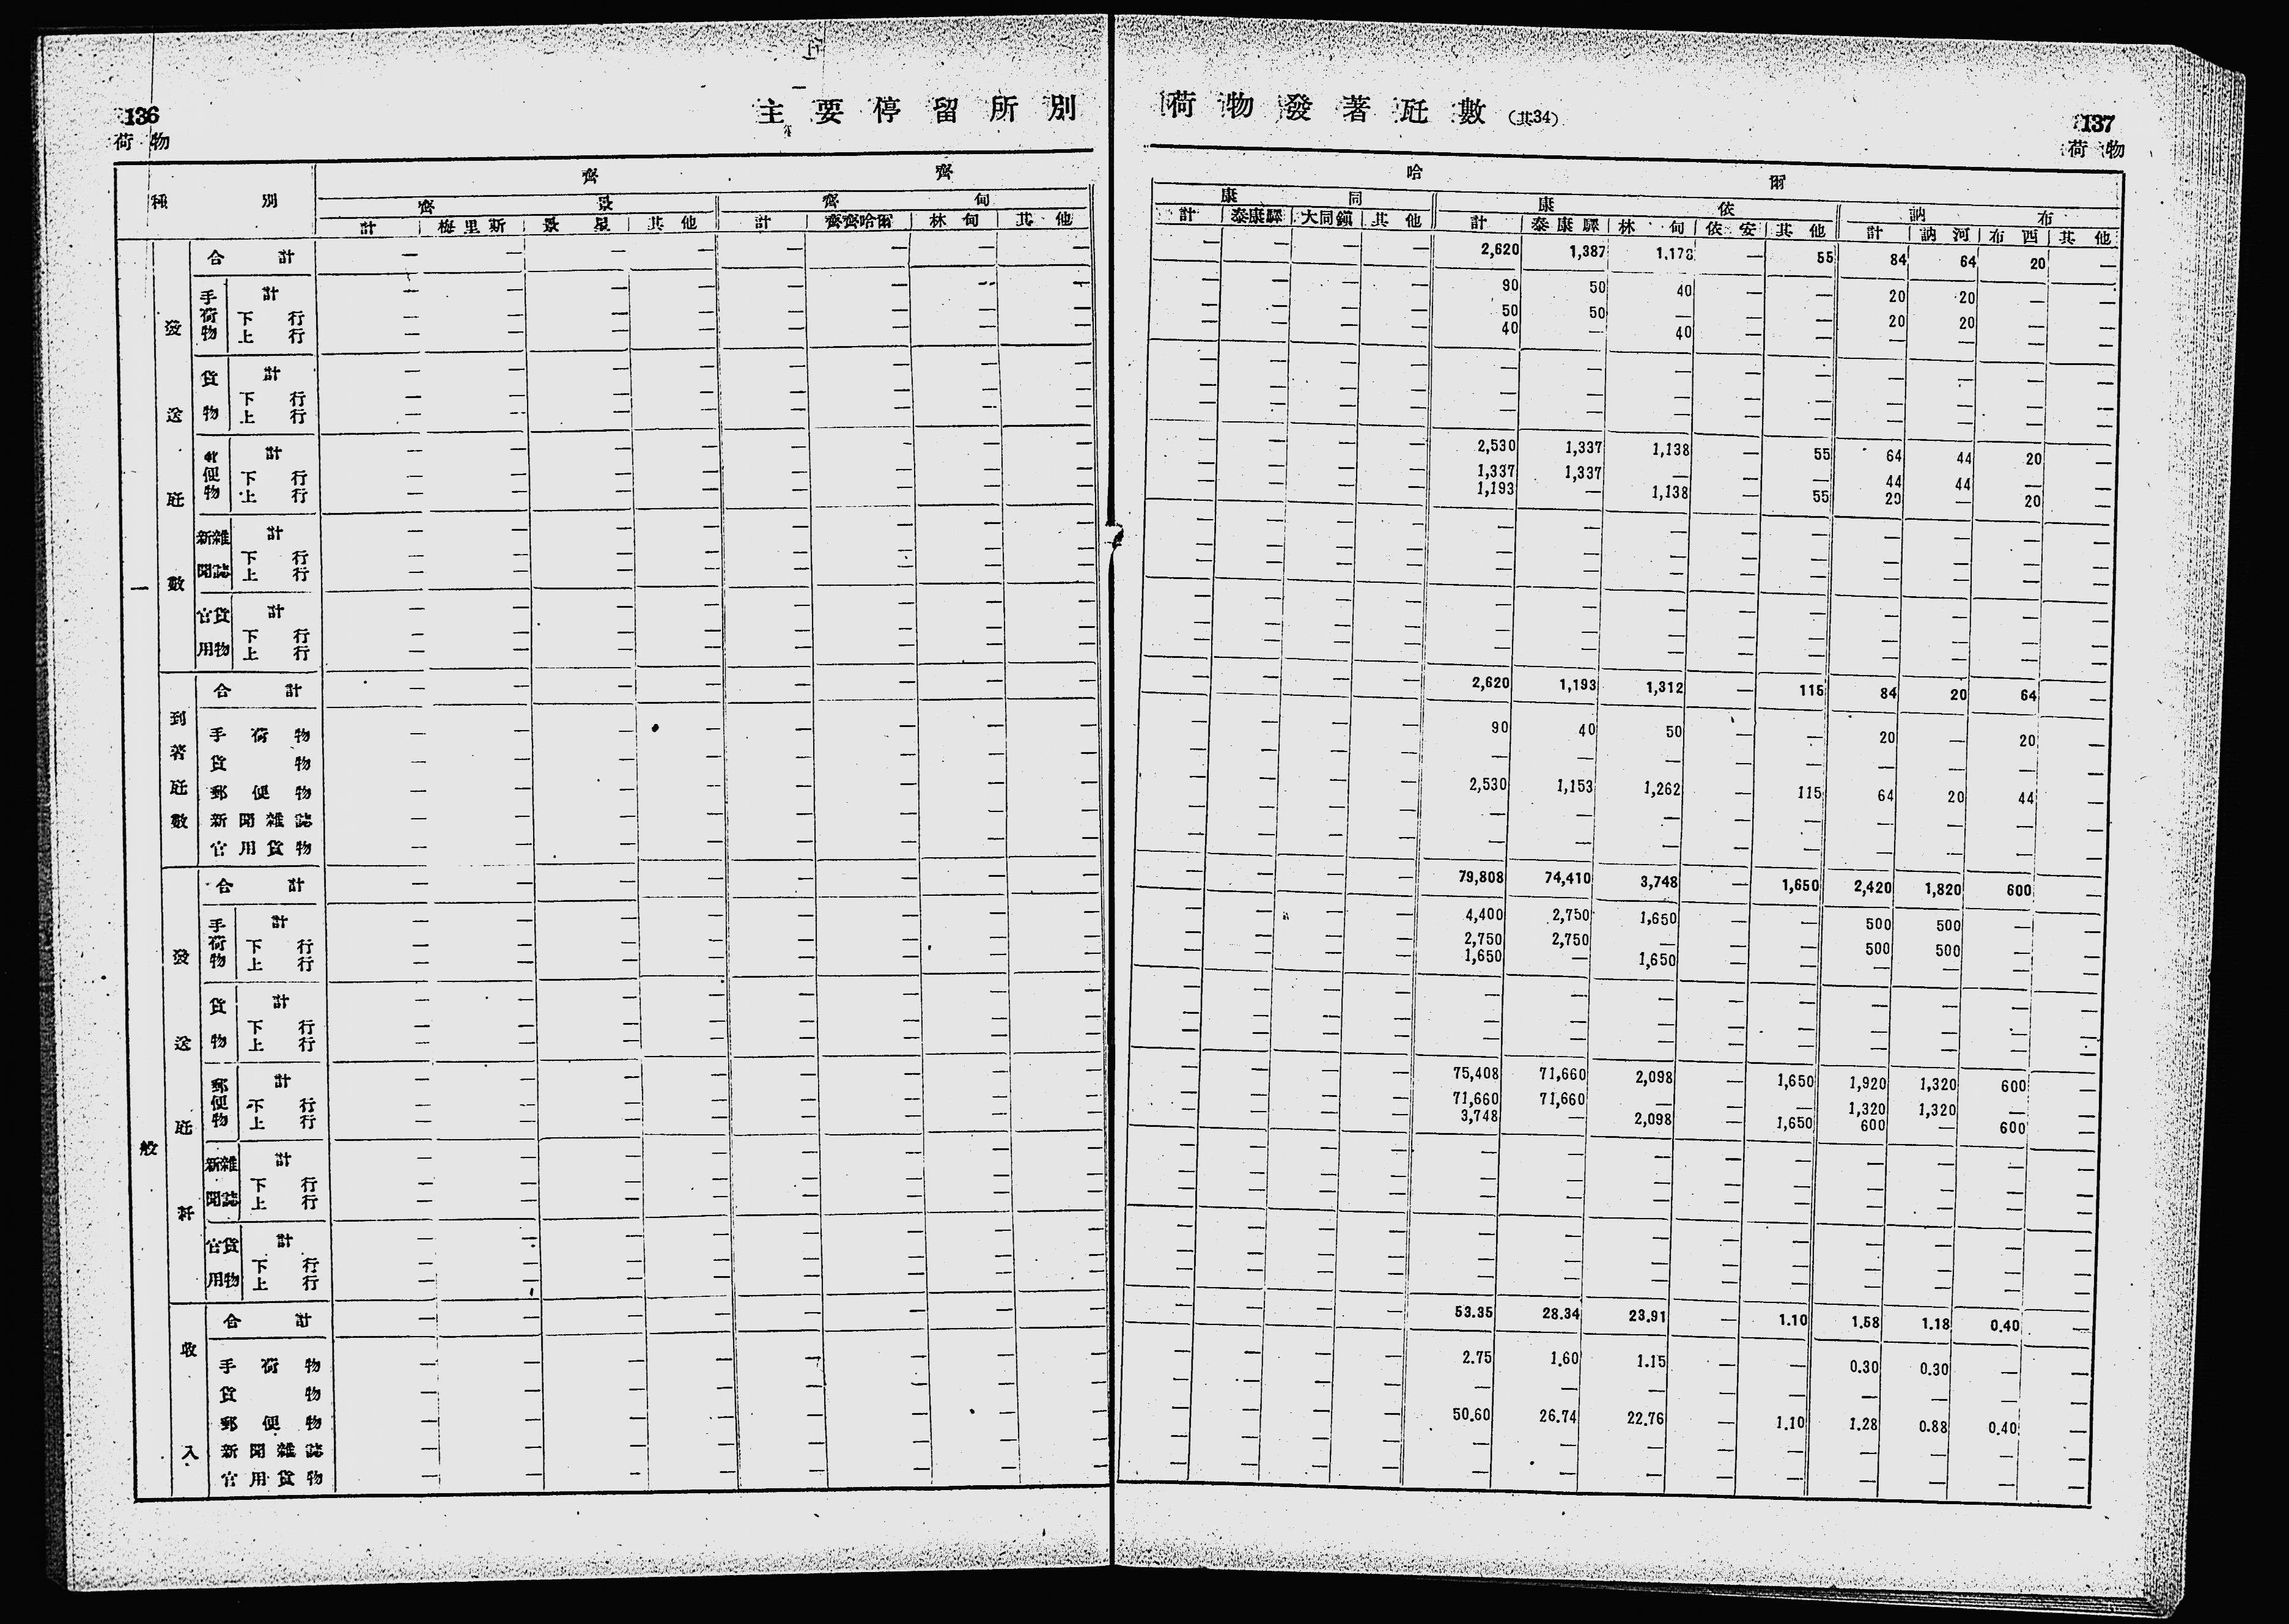 136 主要停留所別 荷物發著瓩數 (其34) 137
荷物 荷物
種別 齊 齊 哈 爾
齊景 齊甸 康同 康依 訥布
計 梅里斯 景星 其他 計 齊齊哈爾 林甸 其他 計 泰康驛 大同鎭 其他 計 泰康驛 林甸 依安 其他 計 訥河 布西 其他
一般
發送瓩數
合計 — — — — — — — — — — — — 2,620 1,387 1,178 — 55 84 64 20 —
手荷物 計 — — — — — — — — — — — — 90 50 40 — — 20 20 — —
下行 — — — — — — — — — — — — 50 50 — — — 20 20 — —
上行 — — — — — — — — — — — — 40 — 40 — — — — — —
貨物 計 — — — — — — — — — — — — — — — — — — — — —
下行 — — — — — — — — — — — — — — — — — — — — —
上行 — — — — — — — — — — — — — — — — — — — — —
郵便物 計 — — — — — — — — — — — — 2,530 1,337 1,138 — 55 64 44 20 —
下行 — — — — — — — — — — — — 1,337 1,337 — — — 44 44 — —
上行 — — — — — — — — — — — — 1,193 — 1,138 — 55 20 — 20 —
新聞雜誌 計 — — — — — — — — — — — — — — — — — — — — —
下行 — — — — — — — — — — — — — — — — — — — — —
上行 — — — — — — — — — — — — — — — — — — — — —
官用貨物 計 — — — — — — — — — — — — — — — — — — — — —
下行 — — — — — — — — — — — — — — — — — — — — —
上行 — — — — — — — — — — — — — — — — — — — — —
到著瓩數
合計 — — — — — — — — — — — — 2,620 1,193 1,312 — 115 84 20 64 —
手荷物 — — — — — — — — — — — — 90 40 50 — — 20 — 20 —
貨物 — — — — — — — — — — — — — — — — — — — — —
郵便物 — — — — — — — — — — — — 2,530 1,153 1,262 — 115 64 20 44 —
新聞雜誌 — — — — — — — — — — — — — — — — — — — — —
官用貨物 — — — — — — — — — — — — — — — — — — — — —
發送瓩粁
合計 — — — — — — — — — — — — 79,808 74,410 3,748 — 1,650 2,420 1,820 600 —
手荷物 計 — — — — — — — — — — — — 4,400 2,750 1,650 — — 500 500 — —
下行 — — — — — — — — — — — — 2,750 2,750 — — — 500 500 — —
上行 — — — — — — — — — — — — 1,650 — 1,650 — — — — — —
貨物 計 — — — — — — — — — — — — — — — — — — — — —
下行 — — — — — — — — — — — — — — — — — — — — —
上行 — — — — — — — — — — — — — — — — — — — — —
郵便物 計 — — — — — — — — — — — — 75,408 71,660 2,098 — 1,650 1,920 1,320 600 —
下行 — — — — — — — — — — — — 71,660 71,660 — — — 1,320 1,320 — —
上行 — — — — — — — — — — — — 3,748 — 2,098 — 1,650 600 — 600 —
新聞雜誌 計 — — — — — — — — — — — — — — — — — — — — —
下行 — — — — — — — — — — — — — — — — — — — — —
上行 — — — — — — — — — — — — — — — — — — — — —
官用貨物 計 — — — — — — — — — — — — — — — — — — — — —
下行 — — — — — — — — — — — — — — — — — — — — —
上行 — — — — — — — — — — — — — — — — — — — — —
收入
合計 — — — — — — — — — — — — 53.35 28.34 23.91 — 1.10 1.58 1.18 0.40 —
手荷物 — — — — — — — — — — — — 2.75 1.60 1.15 — — 0.30 0.30 — —
貨物 — — — — — — — — — — — — — — — — — — — — —
郵便物 — — — — — — — — — — — — 50.60 26.74 22.76 — 1.10 1.28 0.88 0.40 —
新聞雜誌 — — — — — — — — — — — — — — — — — — — — —
官用貨物 — — — — — — — — — — — — — — — — — — — — —